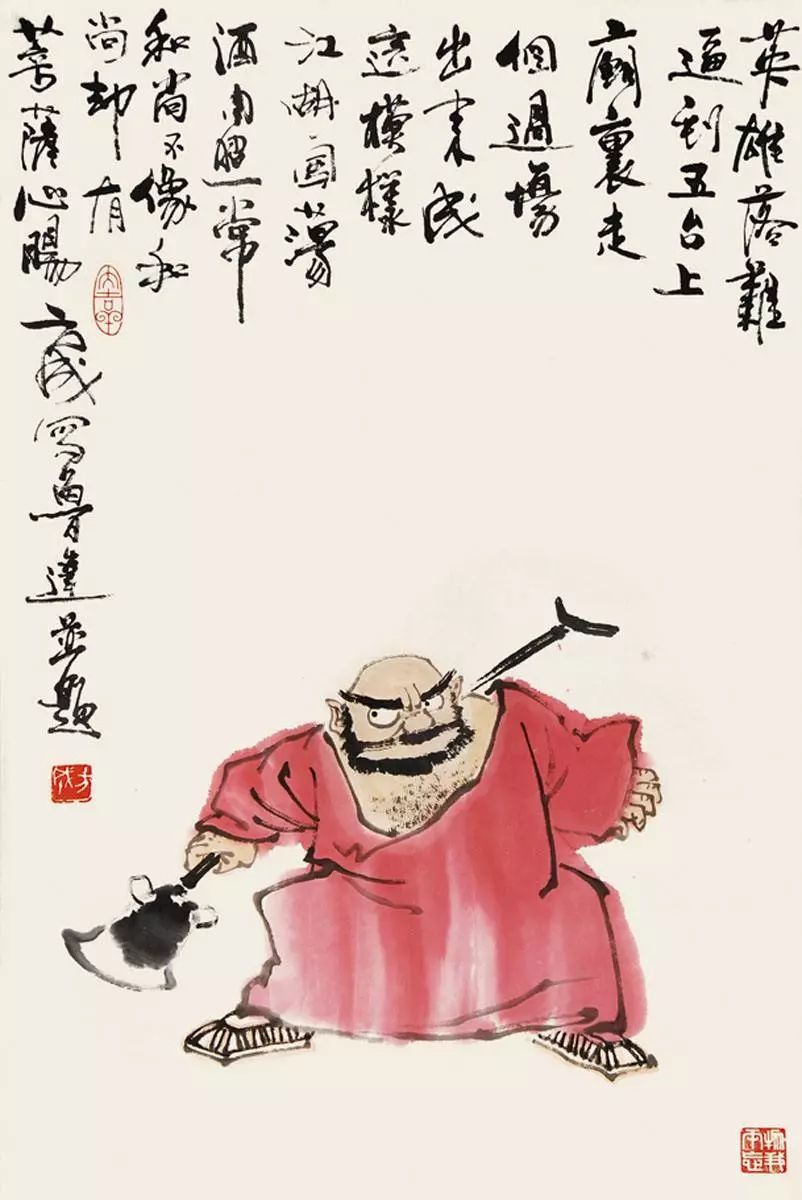 英雄落難
逼到五台上
廟裏走
個過場
出家成
這模樣
江湖回蕩
酒肉照常
和尚不像和
尚却有
菩薩心腸
方成寫魯達並題
方成